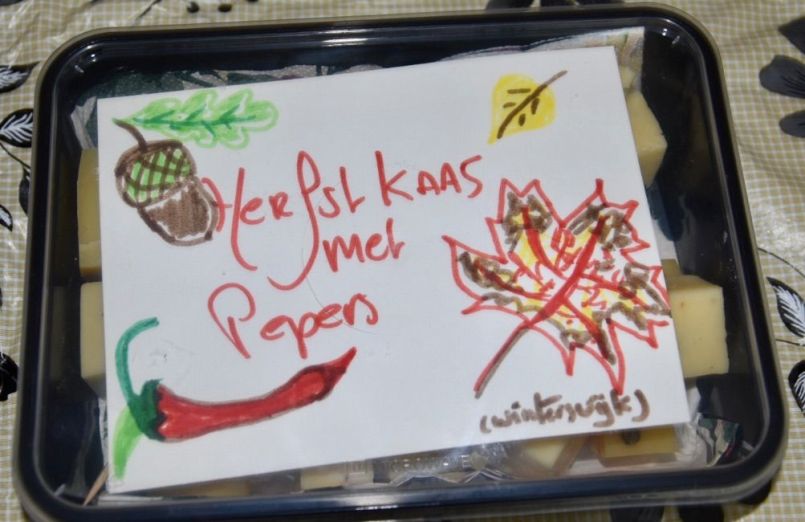 HERfst KAAS
met
Pepers
(winterswijk)